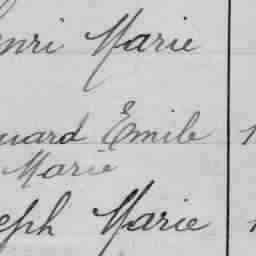 enri Marie
uard Emile 1
Marie
eph Marie 1